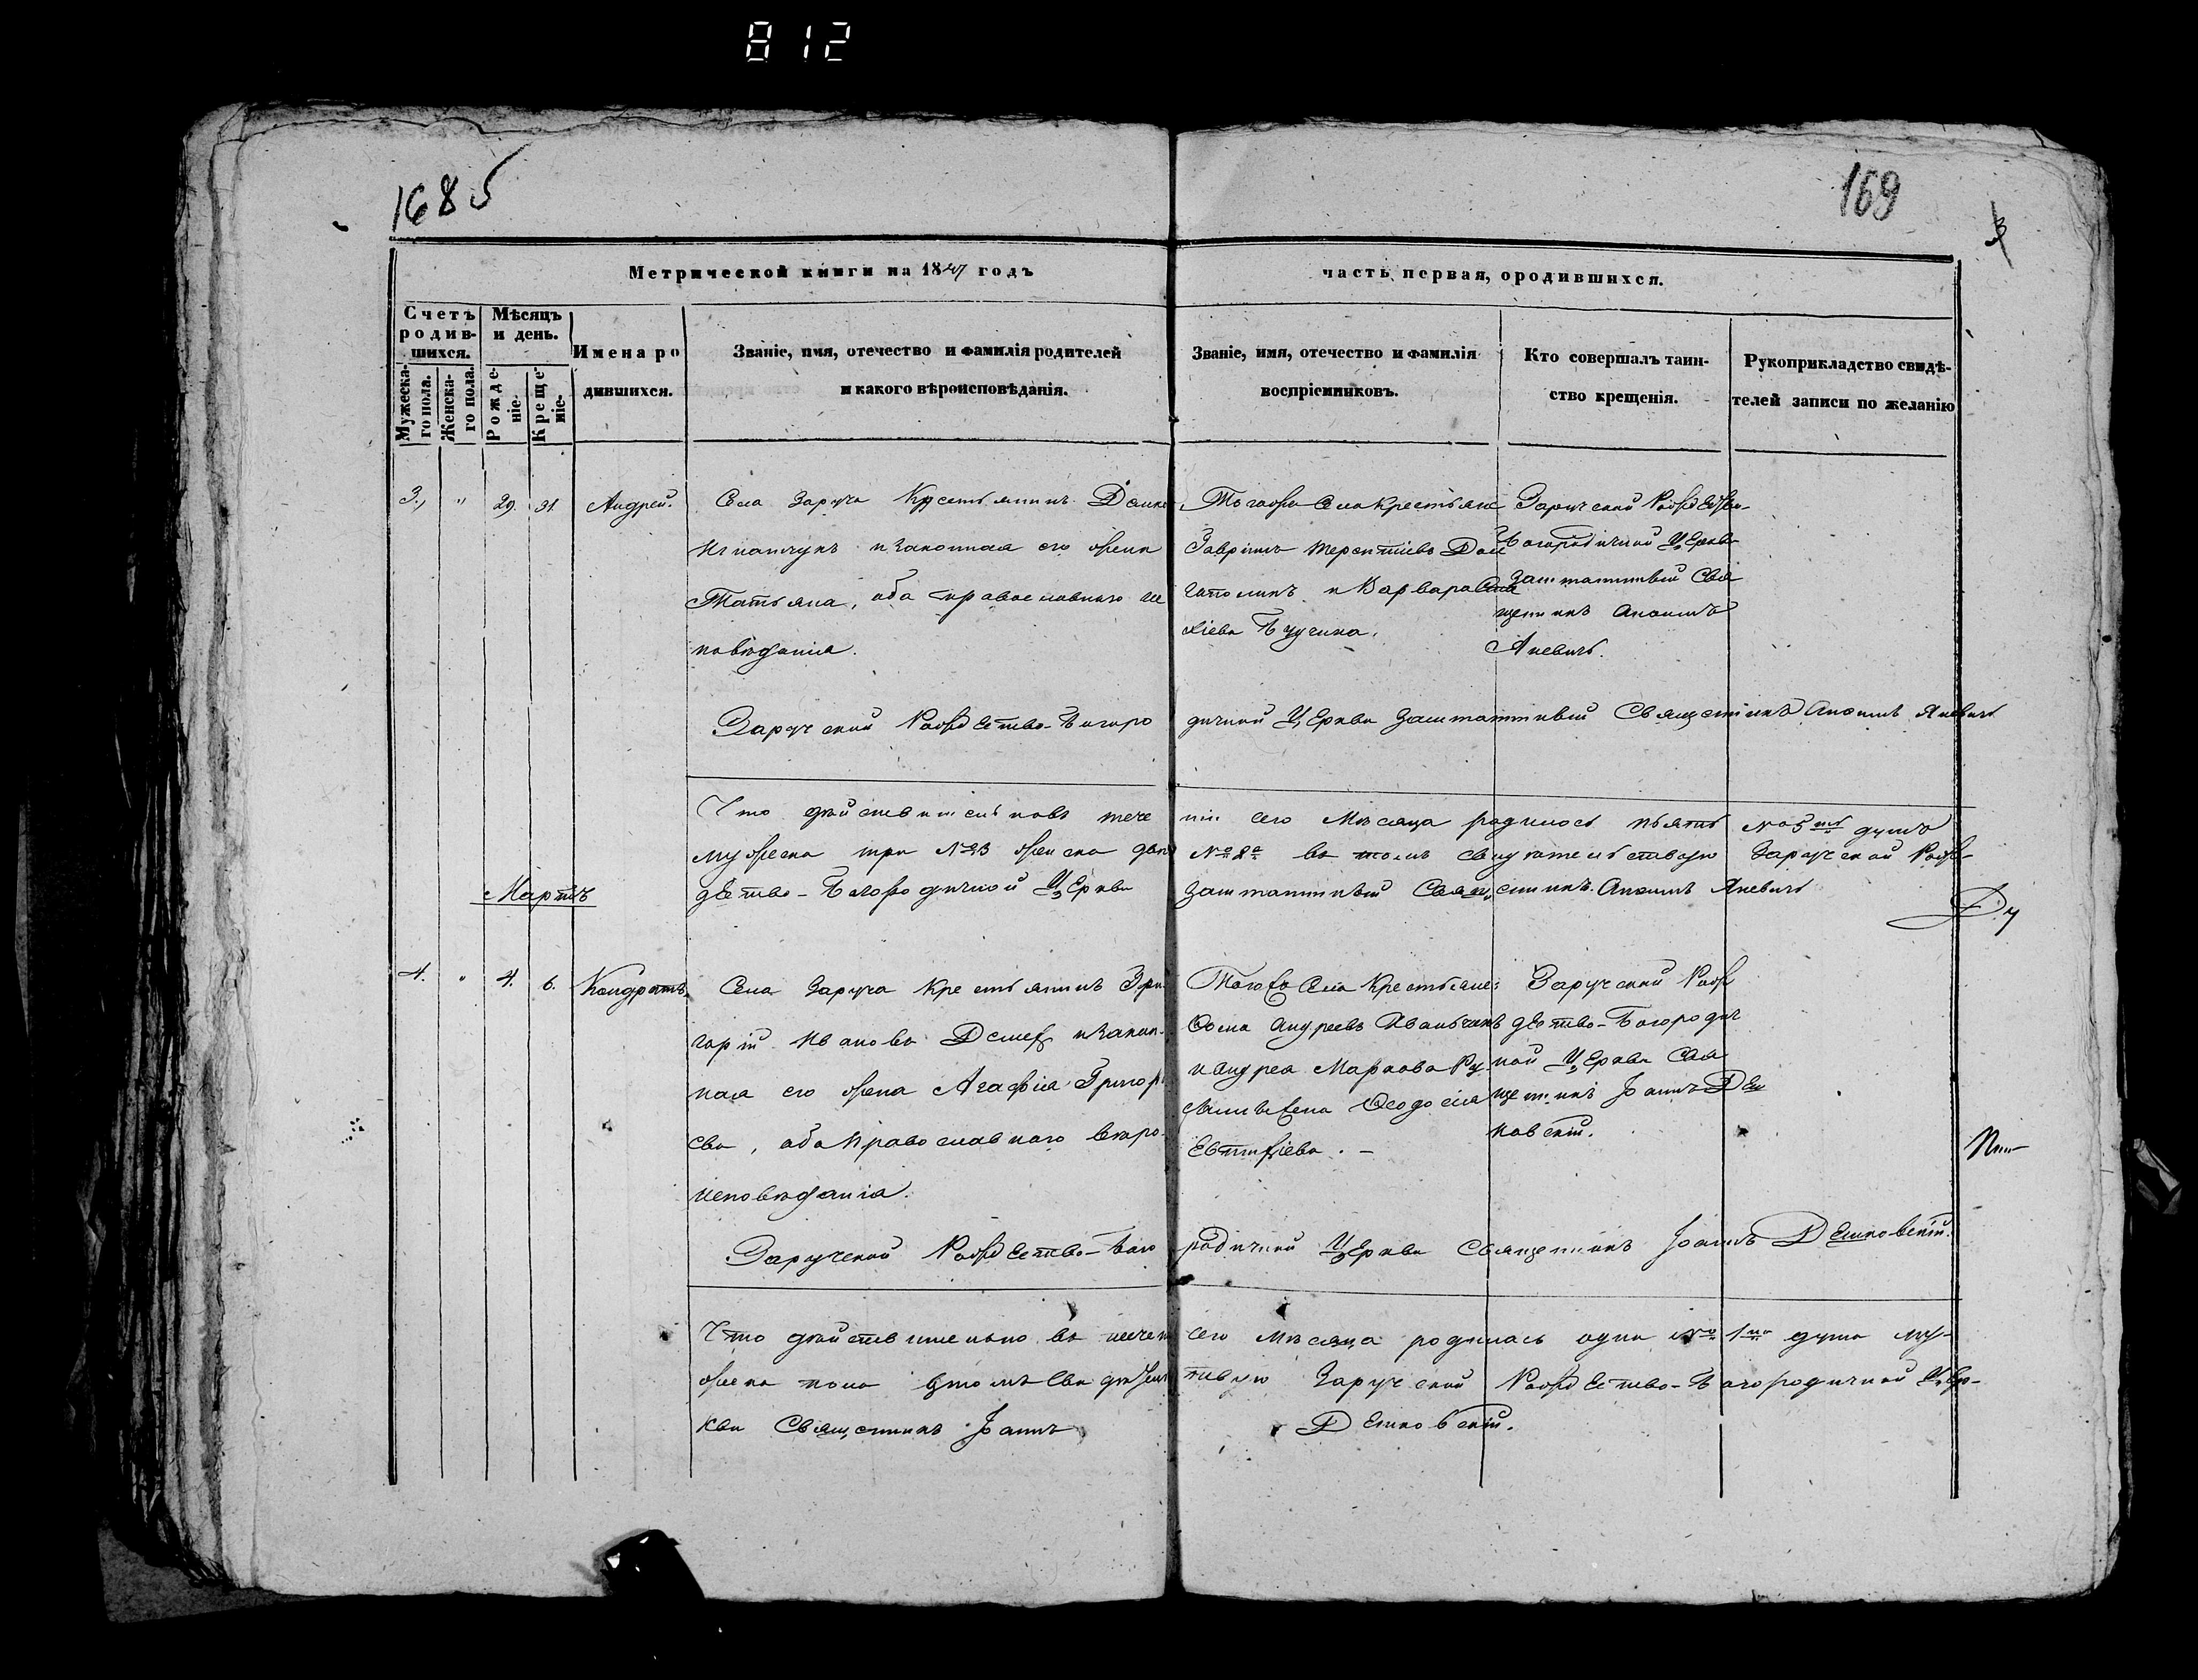 812
1685
169
Метрической книги на 1847 годъ
часть первая, ородившихся.
Счетъ родив-шихся.
Мужеска-го пола.
Женска-го пола.
Мѣсяцъ и день.
Рожде-ніе.
Креще-ніе.
Имена ро
дившихся.
Званіе, имя, отечество и фамилія родителей
и какого вѣроисповѣданія.
Званіе, имя, отечество и фамилія
воспріемниковъ.
Кто совершалъ таин-
ство крещенія.
Рукоприкладство свидѣ-
телей записи по желанію
3., " 29. 31. Андрей.
Села Заруча Крестьянинъ
и законная его жена
Татьяна, оба православнаго ис
повѣданія.
Тогоже Села Крестьяне
Гавріилъ Терентіевъ
и Варвара
Заручской Рождество-
Богородичной Церкви
Заштатный Свя
щенникъ
Яневичъ.
Заручской Рождество-Богоро
дичной Церкви Заштатный Священникъ Яневичъ
Что действительно въ тече
ніи сего Мѣсяца родилось пьять № 5ть душъ
мужеска три № 3 женска двѣ
№ 2 въ томъ свидѣтельствую Заручской Рож-
дество-Богородичной Церкви
Заштатный Священникъ Яневичъ
Мартъ
4. " 4. 6. Кондратъ
Села Заруча Крестьянинъ Гри
горій Ивановъ и закон-
ная его жена Агафія Григорь
ева, оба Православнаго вѣро-
исповѣданія.
Тогожъ Села Крестьяне:
Ѳома Андреевъ
и Андрея Маркова
жена Ѳеодосія
Евтихіева. -
Заручской Рож
дество-Богородич
ной Церкви Свя
щенникъ Іоаннъ Дем
новскій.
Заручской Рождество-Бого
родичной Церкви Священникъ Іоаннъ Демновскій.
Что дѣйствительно въ
сего Мѣсяца родилась одна № 1на душа му-
жеска пола въ томъ свидѣтель
ствую Заручской Рождество-Богородичной Цер-
кви Священникъ Іоаннъ
Демновскій.